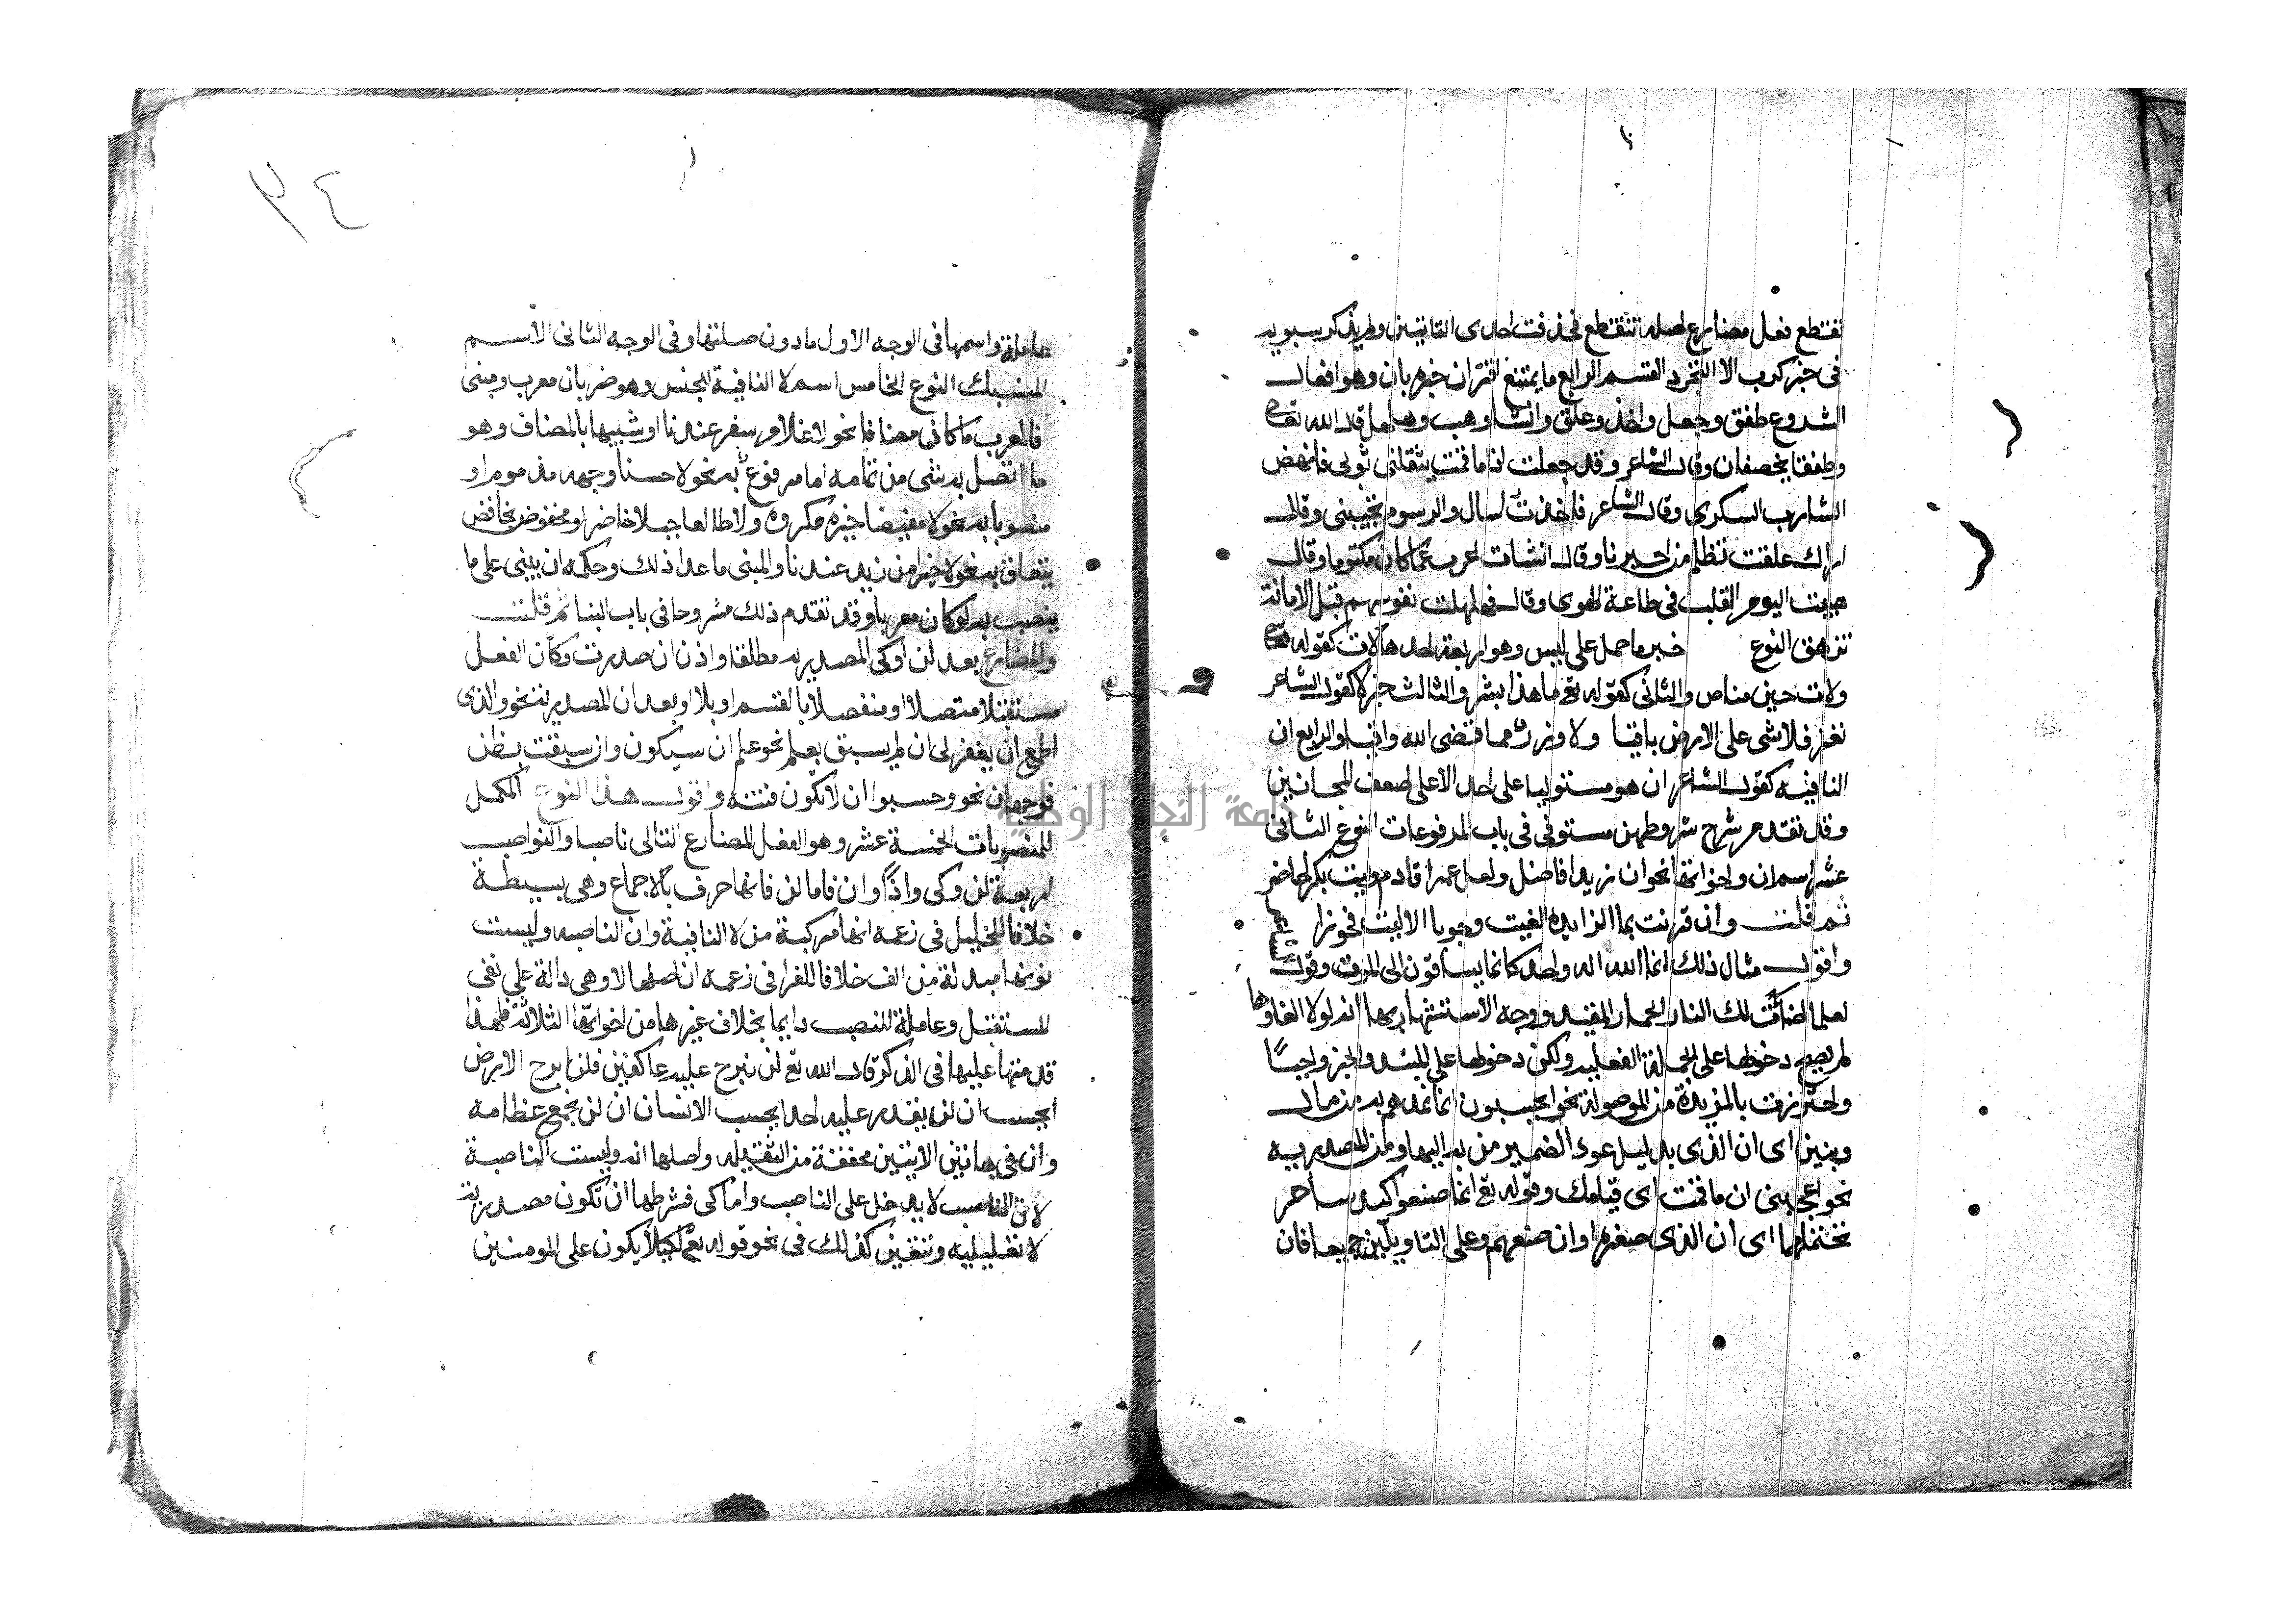 تقتطع فعل مضارع اصله تتقطع فحذفت احدى التائين ولم يذكر سيبويه
فى خبر كرب الا التجرد القسم الرابع ما يمتنع اقتران خبره بان وهو افعال
الشروع طفق وجعل واخذ وعلق وانشا وهب وهلهل قال الله تعالى
وطفقا يخصفان وقال الشاعر وقد جعلت اذا ما قمت يثقلنى ثوبى فانهض
الشارب السكرى وقال الشاعر فاخذت اسال والرسوم تجيبنى وقال
اراك علقت تظلم من اجرنا وقال انشات اعرب عما كان مكتوما وقال
هببت اليوم القلب فى طاعة الهوى وقال فهلهلت نفوسهم قبل الاماتة
تزهق النوع خبر ما حمل على ليس وهو اربعة احدها لات كقوله تعالى
ولات حين مناص والثانى كقوله تع ما هذا بشر والثالث خبر لا كقول الشاعر
تعز فلا شى على الارض باقيا ولا وزر مما قضى الله واقيا والرابع ان
النافيه كقول الشاعر ان هو مستوليا على احد الا على اضعف المجانين
وقد تقدم شرح شروطهن مستوفى فى باب المرفوعات النوع الثانى
عشر اسم ان واخواتها نحو ان زيدا فاضل ولعل عمرا قادم وليت بكرا حاضر
ثم قلت وان قرنت بما الزايده الغيت وجوبا الا ليت فجوزا
واقول مثال ذلك انما الله اله واحد كانما يساقون الى الموت وقول
الشاعر
لعلما اضائت لك النار الحمار المقيد ووجه الاستشهاد بها انه لولا الغاوها
لم يصح دخولها على الجملة الفعليه ولكن دخولها على المبتدا والخبر واجبًا
واحترزت بالمزيدة من الموصولة نحو ايحسبون انما نمدهم به من مال
وبنين اى ان الذى بدليل عود الضمير من به اليها ومن المصدريه
نحو اعجبنى ان ما قمت اى قيامك وقوله تع انما صنعوا كيد ساحر
تحتملهما اى ان الذى صنعوا او ان صنعهم وعلى التاويلين جميعا فان
٣٤
عاملة واسمها فى الوجه الاول ما دون صلتها وفى الوجه الثانى الاسم
المنسبك النوع الخامس اسم لا النافية الجنس وهو ضربان معرب ومبنى
فالمعرب ما كان مضافا نحو لا غلام سفر عندنا او شبيها بالمضاف وهو
ما اتصل به شى من تمامه اما مرفوع به نحو لا حسنا وجهه مذموم او
منصوبا به نحو لا مفيضا خيره مكروه ولا طالعا جبلا حاضر او مخفوض بخافض
يتعلق به نحو لا خيرا من زيد عندنا والمبنى ما عدا ذلك وحكمه ان يبنى على ما
ينصب به لو كان معربا وقد تقدم ذلك مشروحا فى باب البنا ثم قلت
والمضارع بعد لن او كى المصدريه مطلقا واذن ان صدرت وكان الفعل
مستقبلا متصلا او منفصلا بالقسم او بلا او بعد ان المصدرية نحو والذى
اطمع ان يغفر لى ان لم يسبق بعلم نحو علم ان سيكون وان سبقت بظن
فوجهان نحو وحسبوا ان لا تكون فتنة واقول هذا النوع المكمل
للمنصوبات الخمسة عشر وهو الفعل المضارع التالى ناصبا والنواصب
اربعة لن وكى واذًا وان فاما لن فانها حرف بالاجماع وهى بسيطة
خلافا للخليل فى زعمه انها مركبة من لا النافية وان الناصبه وليست
نونها مبدلة من الف خلافا للفرا فى زعمه ان اصلها لا وهى دالة على نفى
المستقبل وعاملة للنصب دايما بخلاف غيرها من اخواتها الثلاثة فلهذا
قدمتها عليها فى الذكر قال الله تع لن نبرح عليه عاكفين فلن ابرح الارض
ايحسب ان لن يقدر عليه احد ايحسب الانسان ان لن نجمع عظامه
وان فى هاتين الايتين مخففة من الثقيله واصلها انه وليست الناصبة
لان الناصب لا يدخل على الناصب واما كى فشرطها ان تكون مصدرية
لا تعليليه وتتعين كذلك فى نحو قوله تع لكيلا يكون على المومنين
جامعة النجاح الوطنية